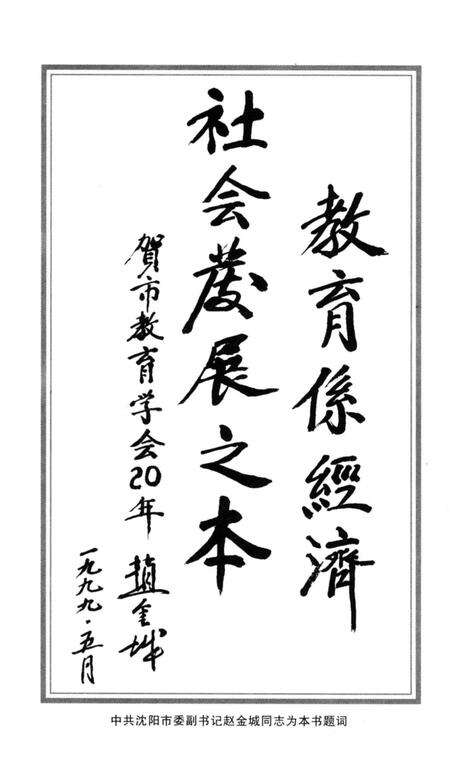 教育係經濟
社会发展之本
贺市教育学会20年
趙金城
一九九九·五月
中共沈阳市委副书记赵金城同志为本书题词